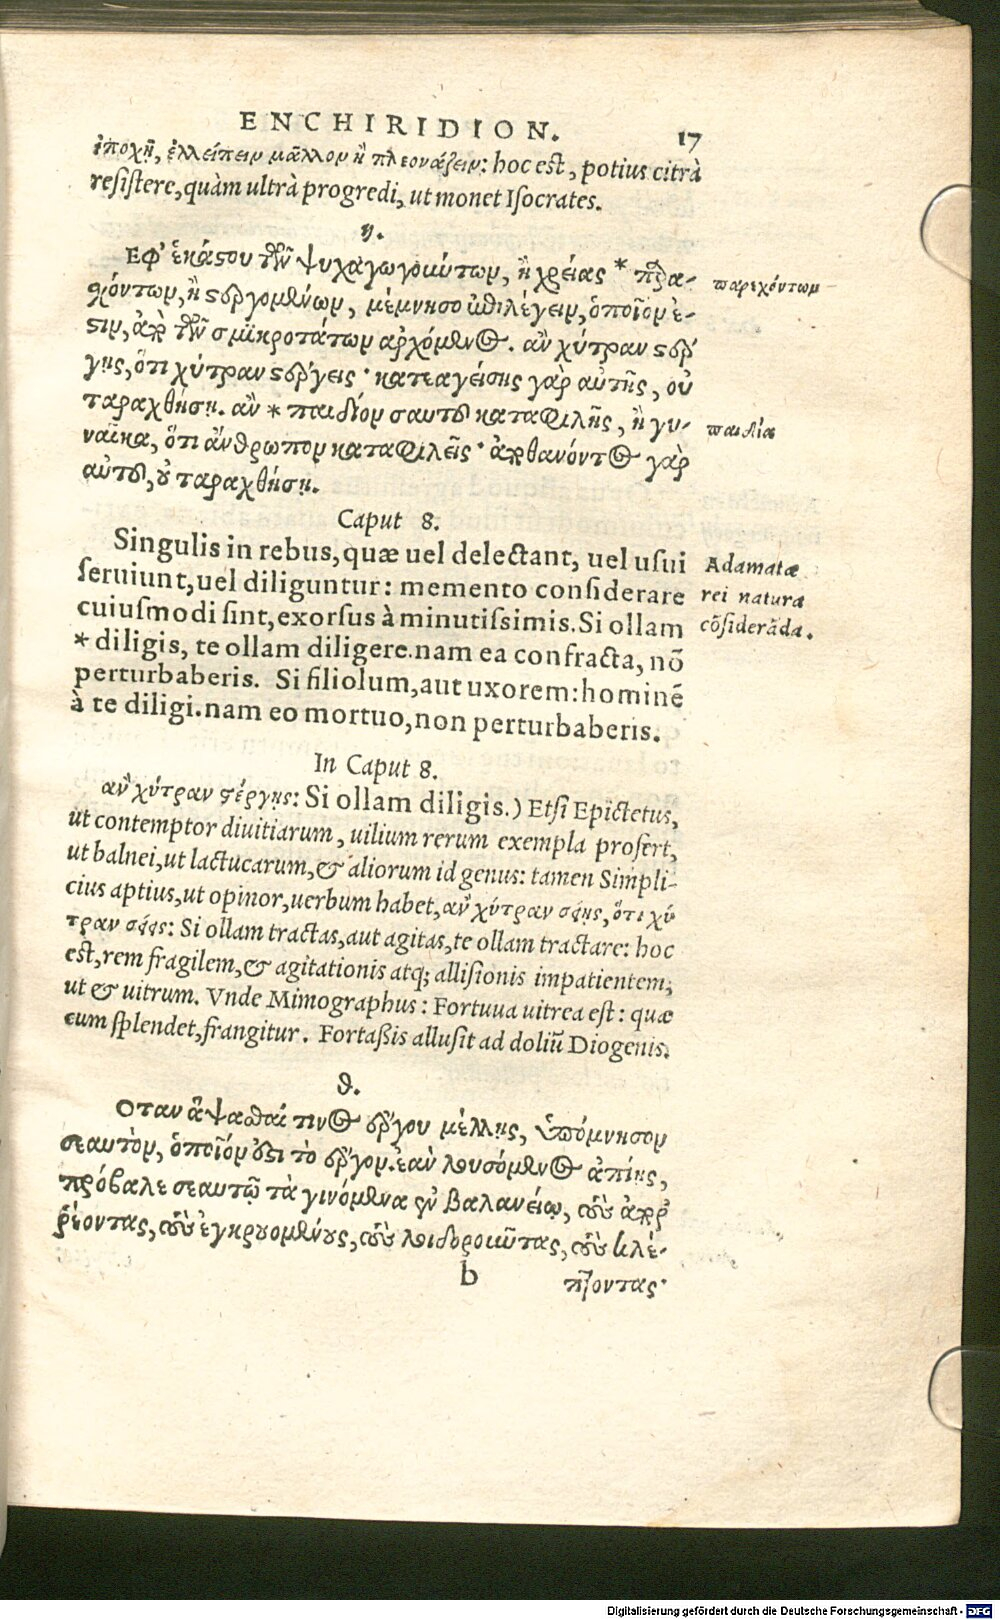 ENCHIRIDION. 17
ἐποχῇ, ἐλλείπειν μᾶλλον ἢ πλεονάζειν: hoc est, potius citrà
resistere, quàm ultrà progredi, ut monet Isocrates.
η.
Εφ’ ἑκάστου τῶν ψυχαγωγούντων, ἢ χρείας * παρα-
χόντων, ἢ στεργομένων, μέμνησο ἐπιλέγειν, ὁποῖον ἐ-
στιν, ἀπὸ τῶν σμικροτάτων ἀρχόμενος. ἂν χύτραν στέρ-
γῃς, ὅτι χύτραν στέργεις· κατεαγείσης γὰρ αὐτῆς, οὐ
ταραχθήσῃ. ἂν * παιδίον σαυτοῦ καταφιλῇς, ἢ γυ-
ναῖκα, ὅτι ἄνθρωπον καταφιλεῖς· ἀποθανόντος γὰρ
αὐτοῦ, οὐ ταραχθήσῃ.
παρεχόντων
παιδία
Caput 8.
Singulis in rebus, quæ uel delectant, uel usui
seruiunt, uel diliguntur: memento considerare
cuiusmodi sint, exorsus à minutissimis. Si ollam
* diligis, te ollam diligere. nam ea confracta, nõ
perturbaberis. Si filiolum, aut uxorem: hominẽ
à te diligi. nam eo mortuo, non perturbaberis.
Adamatæ
rei natura
cõsiderãda.
In Caput 8.
ἂν χύτραν στέργῃς: Si ollam diligis.) Etsi Epictetus,
ut contemptor diuitiarum, uilium rerum exempla profert,
ut balnei, ut lactucarum, & aliorum id genus: tamen Simpli-
cius aptius, ut opinor, uerbum habet, ἂν χύτραν σείῃς, ὅτι χύ
τραν σείεις: Si ollam tractas, aut agitas, te ollam tractare: hoc
est, rem fragilem, & agitationis atq; allisionis impatientem,
ut & uitrum. Vnde Mimographus: Fortuua uitrea est: quæ
cum splendet, frangitur. Fortaßis allusit ad doliũ Diogenis.
θ.
Οταν ἅψασθαί τινος ἔργου μέλλῃς, ὑπόμνησον
σεαυτὸν, ὁποῖόν ἐστι τὸ ἔργον. ἐὰν λουσόμενος ἀπίῃς,
πρόβαλε σεαυτῷ τὰ γινόμενα ἐν βαλανείῳ, τοὺς ἀποῤ-
ῥέοντας, τοὺς ἐγκρουομένους, τοὺς λοιδοροῦντας, τοὺς κλέ-
b πτοντας·
Digitalisierung gefördert durch die Deutsche Forschungsgemeinschaft - DFG